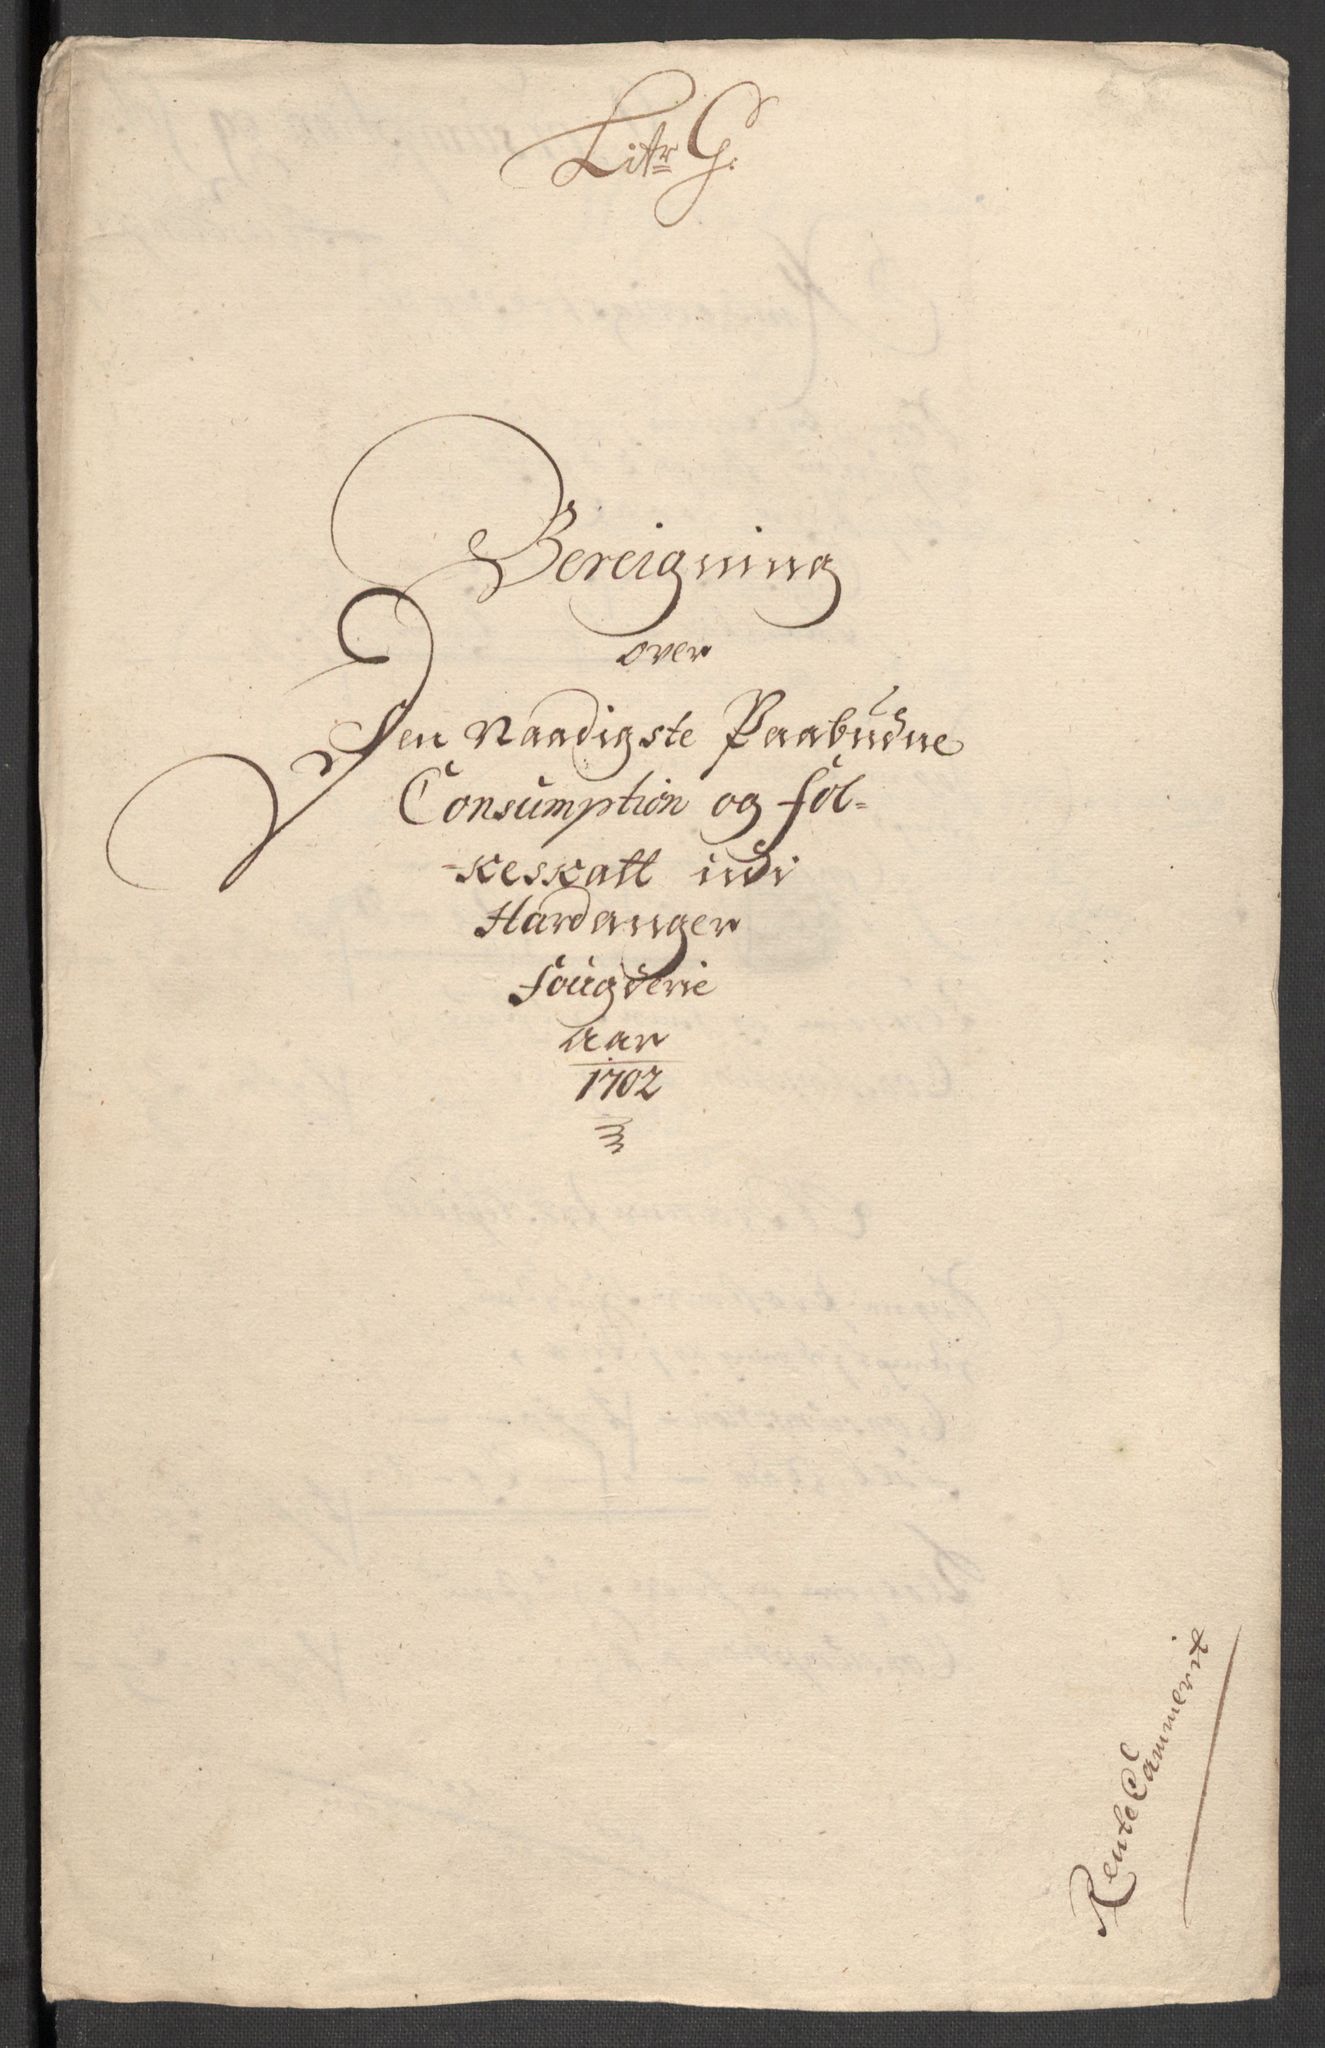 Litr G.
Bereigning
over
Den Naadigste Paabudne
Consumption og fol=
-keskatt udi
Hardanger
fougderie
aar
1702
RenteCammerit